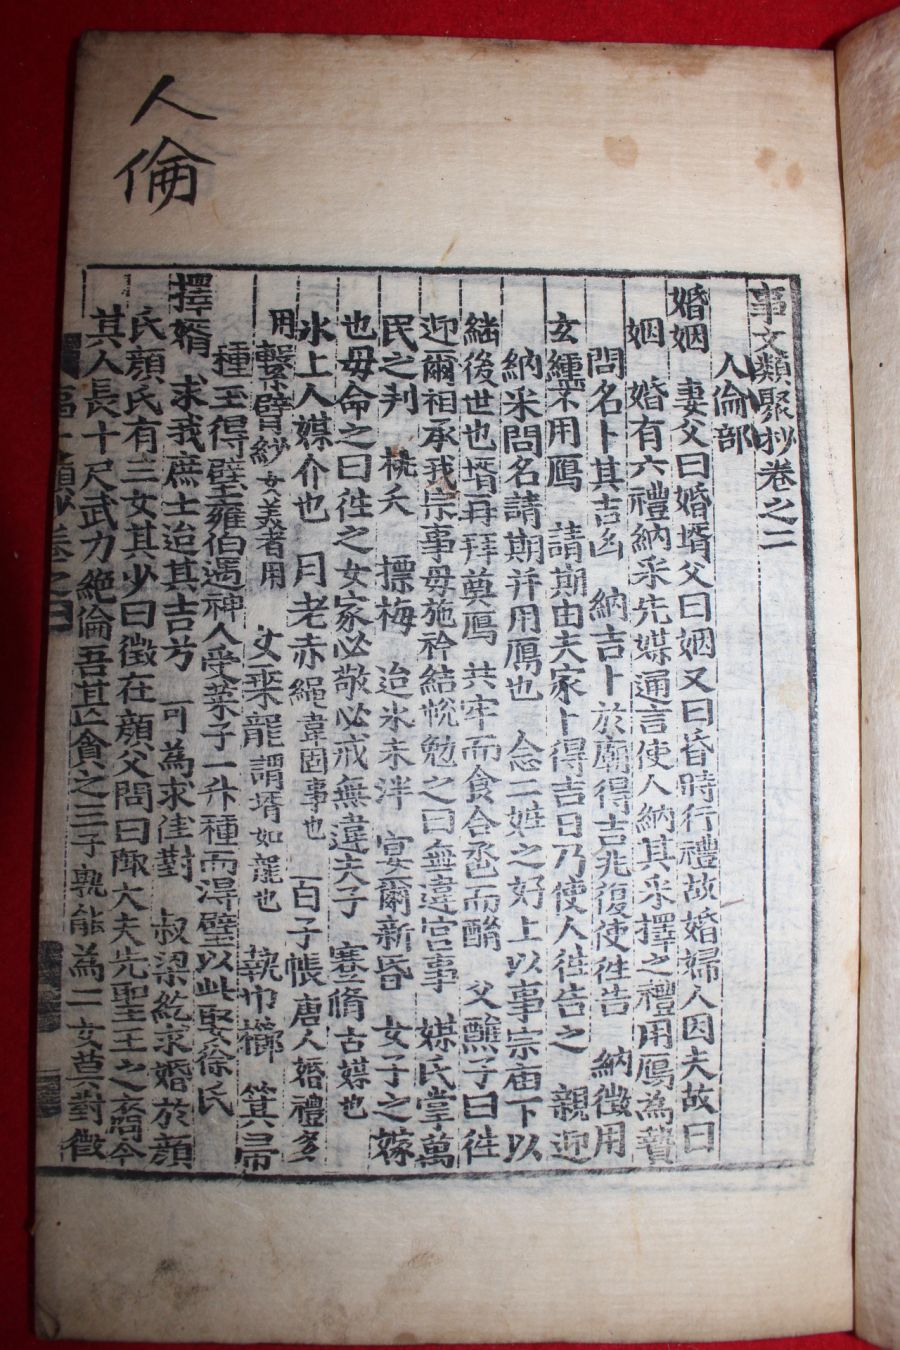 人倫
事文類聚抄卷之二
人倫部
婚姻 妻父曰婚壻父曰姻又曰昏時行禮故婚婦人因夫故曰
姻 婚有六禮納采先媒通言使人納其采擇之禮用鴈為贄
問名卜其吉凶 納吉卜於廟得吉兆復使徃告 納徵用
玄纁不用鴈 請期由夫家卜得吉日乃使人徃告之 親迎
納米問名請期并用鴈也 合二姓之好上以事宗庙下以
継後世也壻再拜奠鴈 共牢而食合卺而酳 父醮子曰徃
迎爾相承我宗事毋施衿結帨勉之曰無違宮事 媒氏掌萬
民之判 桃夭 摽梅 迨氷未泮 宴爾新昏 女子之嫁
也毋命之曰徃之女家必敬必戒無違夫子 蹇脩古媒也
氷上人媒介也 月老赤繩韋固事也 百子帳唐人婚禮多
用 繫臂紗女美者用 女乘龍謂壻如龍也 執巾櫛 箕帚
種玉得璧雍伯遇神人受菜子一升種而得璧以此娶徐氏
擇婿 求我庶士迨其吉兮 可為求佳對 叔梁紇求婚於顔
氏顔氏有三女其少曰徵在顔父問曰陬大夫先聖王之裔今
其人長十尺武力絶倫吾甚貪之三子孰能為二女莫對徵